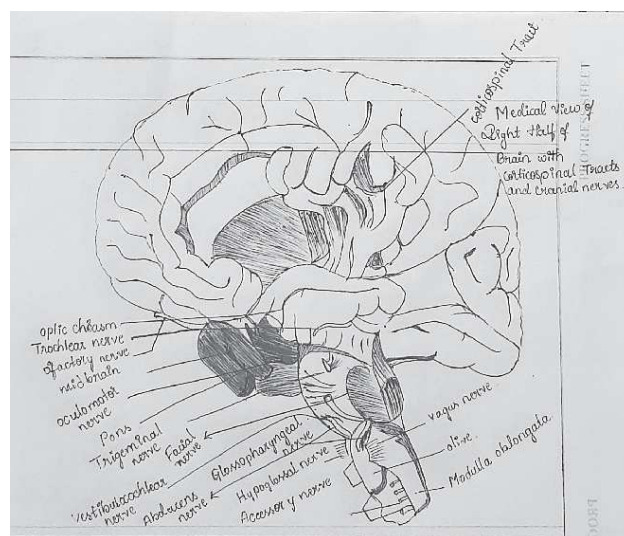 corticospinal Tract
Medical View of
Right Half of
Brain with
corticospinal Tracts
and cranial nerves.
PROGRESS SHEET
optic chiasm
Trochlear nerve
olfactory nerve
midbrain
oculomotor
nerve
Pons
Trigeminal
nerve
Facial
nerve
Vestibulocochlear
nerve
Abducens
nerve
Glossopharyngeal
nerve
Hypoglossal nerve
Accessory nerve
vagus nerve
olive.
Modulla oblongata